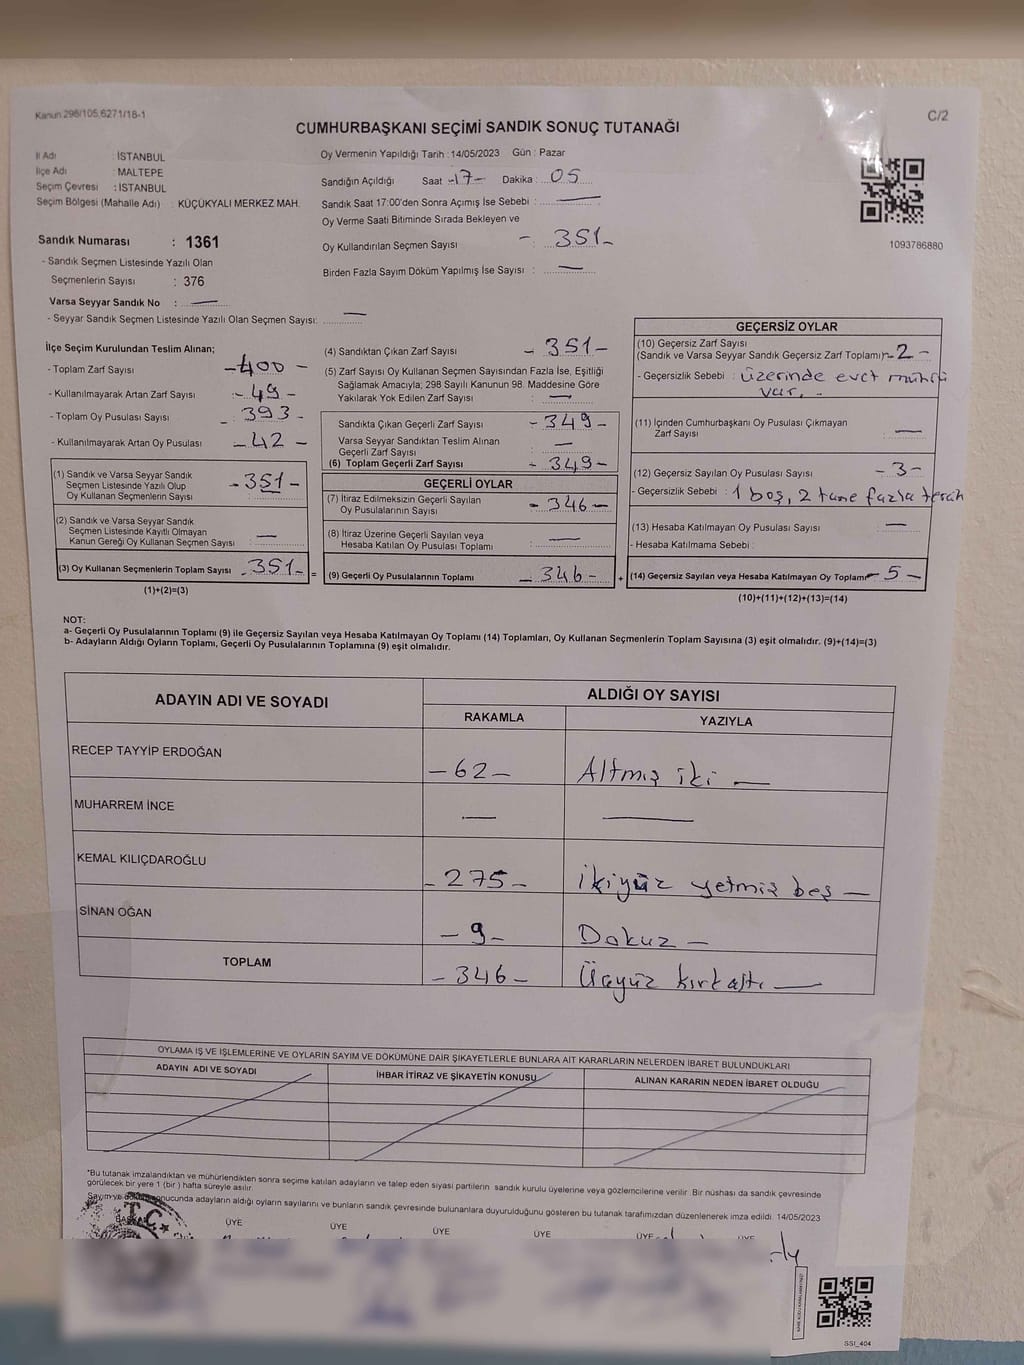 Kanun 298/105,6271/18-1
C/2
CUMHURBAŞKANI SEÇİMİ SANDIK SONUÇ TUTANAĞI
İl Adı : İSTANBUL
İlçe Adı : MALTEPE
Seçim Çevresi : İSTANBUL
Seçim Bölgesi (Mahalle Adı) : KÜÇÜKYALI MERKEZ MAH.
Sandık Numarası : 1361
- Sandık Seçmen Listesinde Yazılı Olan
Seçmenlerin Sayısı : 376
Varsa Seyyar Sandık No : —
- Seyyar Sandık Seçmen Listesinde Yazılı Olan Seçmen Sayısı: —
Oy Vermenin Yapıldığı Tarih : 14/05/2023 Gün : Pazar
Sandığın Açıldığı Saat -17- Dakika : 05
Sandık Saat 17:00'den Sonra Açımış İse Sebebi : —
Oy Verme Saati Bitiminde Sırada Bekleyen ve
Oy Kullandırılan Seçmen Sayısı - : 351-
Birden Fazla Sayım Döküm Yapılmış İse Sayısı : —
1093786880
İlçe Seçim Kurulundan Teslim Alınan;
- Toplam Zarf Sayısı -400 -
- Kullanılmayarak Artan Zarf Sayısı :- 49 -
- Toplam Oy Pusulası Sayısı - 393 -
- Kullanılmayarak Artan Oy Pusulası -42 -
(1) Sandık ve Varsa Seyyar Sandık
Seçmen Listesinde Yazılı Olup
Oy Kullanan Seçmenlerin Sayısı - 351 -
(2) Sandık ve Varsa Seyyar Sandık
Seçmen Listesinde Kayıtlı Olmayan
Kanun Gereği Oy Kullanan Seçmen Sayısı : —
(3) Oy Kullanan Seçmenlerin Toplam Sayısı - 351-
(1)+(2)=(3)
(4) Sandıktan Çıkan Zarf Sayısı - 351-
(5) Zarf Sayısı Oy Kullanan Seçmen Sayısından Fazla İse, Eşitliği
Sağlamak Amacıyla; 298 Sayılı Kanunun 98. Maddesine Göre
Yakılarak Yok Edilen Zarf Sayısı : —
Sandıkta Çıkan Geçerli Zarf Sayısı - 349-
Varsa Seyyar Sandıktan Teslim Alınan
Geçerli Zarf Sayısı : —
(6) Toplam Geçerli Zarf Sayısı - 349-
GEÇERLİ OYLAR
(7) İtiraz Edilmeksizin Geçerli Sayılan
Oy Pusulalarının Sayısı - 346-
(8) İtiraz Üzerine Geçerli Sayılan veya
Hesaba Katılan Oy Pusulası Toplamı : —
= (9) Geçerli Oy Pusulalarının Toplamı - 346- +
GEÇERSİZ OYLAR
(10) Geçersiz Zarf Sayısı
(Sandık ve Varsa Seyyar Sandık Geçersiz Zarf Toplamı)- 2 -
- Geçersizlik Sebebi : üzerinde evet mührü
var. -
(11) İçinden Cumhurbaşkanı Oy Pusulası Çıkmayan
Zarf Sayısı —
(12) Geçersiz Sayılan Oy Pusulası Sayısı - 3 -
- Geçersizlik Sebebi : 1 boş, 2 tane fazla tercih
(13) Hesaba Katılmayan Oy Pusulası Sayısı —
- Hesaba Katılmama Sebebi :
(14) Geçersiz Sayılan veya Hesaba Katılmayan Oy Toplamı - 5 -
(10)+(11)+(12)+(13)=(14)
NOT:
a- Geçerli Oy Pusulalarının Toplamı (9) ile Geçersiz Sayılan veya Hesaba Katılmayan Oy Toplamı (14) Toplamları, Oy Kullanan Seçmenlerin Toplam Sayısına (3) eşit olmalıdır. (9)+(14)=(3)
b- Adayların Aldığı Oyların Toplamı, Geçerli Oy Pusulalarının Toplamına (9) eşit olmalıdır.
ADAYIN ADI VE SOYADI
ALDIĞI OY SAYISI
RAKAMLA YAZIYLA
RECEP TAYYİP ERDOĞAN -62- Altmış iki —
MUHARREM İNCE — —
KEMAL KILIÇDAROĞLU - 275 - ikiyüz yetmiş beş —
SİNAN OĞAN - 9 - Dokuz —
TOPLAM - 346 - Üçyüz kırkaltı —
OYLAMA İŞ VE İŞLEMLERİNE VE OYLARIN SAYIM VE DÖKÜMÜNE DAİR ŞİKAYETLERLE BUNLARA AİT KARARLARIN NELERDEN İBARET BULUNDUKLARI
ADAYIN ADI VE SOYADI İHBAR İTİRAZ VE ŞİKAYETİN KONUSU ALINAN KARARIN NEDEN İBARET OLDUĞU
*Bu tutanak imzalandıktan ve mühürlendikten sonra seçime katılan adayların ve talep eden siyasi partilerin sandık kurulu üyelerine veya gözlemcilerine verilir. Bir nüshası da sandık çevresinde
görülecek bir yere 1 (bir) hafta süreyle asılır.
Sayım ve sonucunda adayların aldığı oyların sayılarını ve bunların sandık çevresinde bulunanlara duyurulduğunu gösteren bu tutanak tarafımızdan düzenlenerek imza edildi. 14/05/2023
T.C.
BAŞKAN ÜYE ÜYE ÜYE ÜYE ÜYE ÜYE
SSI_404